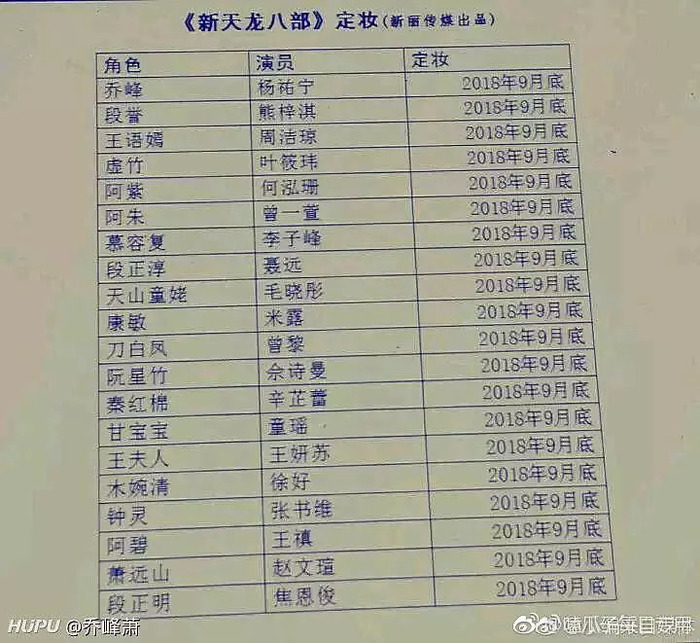 《新天龙八部》定妆(新丽传媒出品)
角色 演员 定妆
乔峰 杨祐宁 2018年9月底
段誉 熊梓淇 2018年9月底
王语嫣 周洁琼 2018年9月底
虚竹 叶筱玮 2018年9月底
阿紫 何泓珊 2018年9月底
阿朱 曾一萱 2018年9月底
慕容复 李子峰 2018年9月底
段正淳 聂远 2018年9月底
天山童姥 毛晓彤 2018年9月底
康敏 米露 2018年9月底
刀白凤 曾黎 2018年9月底
阮星竹 佘诗曼 2018年9月底
秦红棉 辛芷蕾 2018年9月底
甘宝宝 童瑶 2018年9月底
王夫人 王妍苏 2018年9月底
木婉清 徐好 2018年9月底
钟灵 张书维 2018年9月底
阿碧 王禛 2018年9月底
萧远山 赵文瑄 2018年9月底
段正明 焦恩俊 2018年9月底
HUPU @乔峰萧